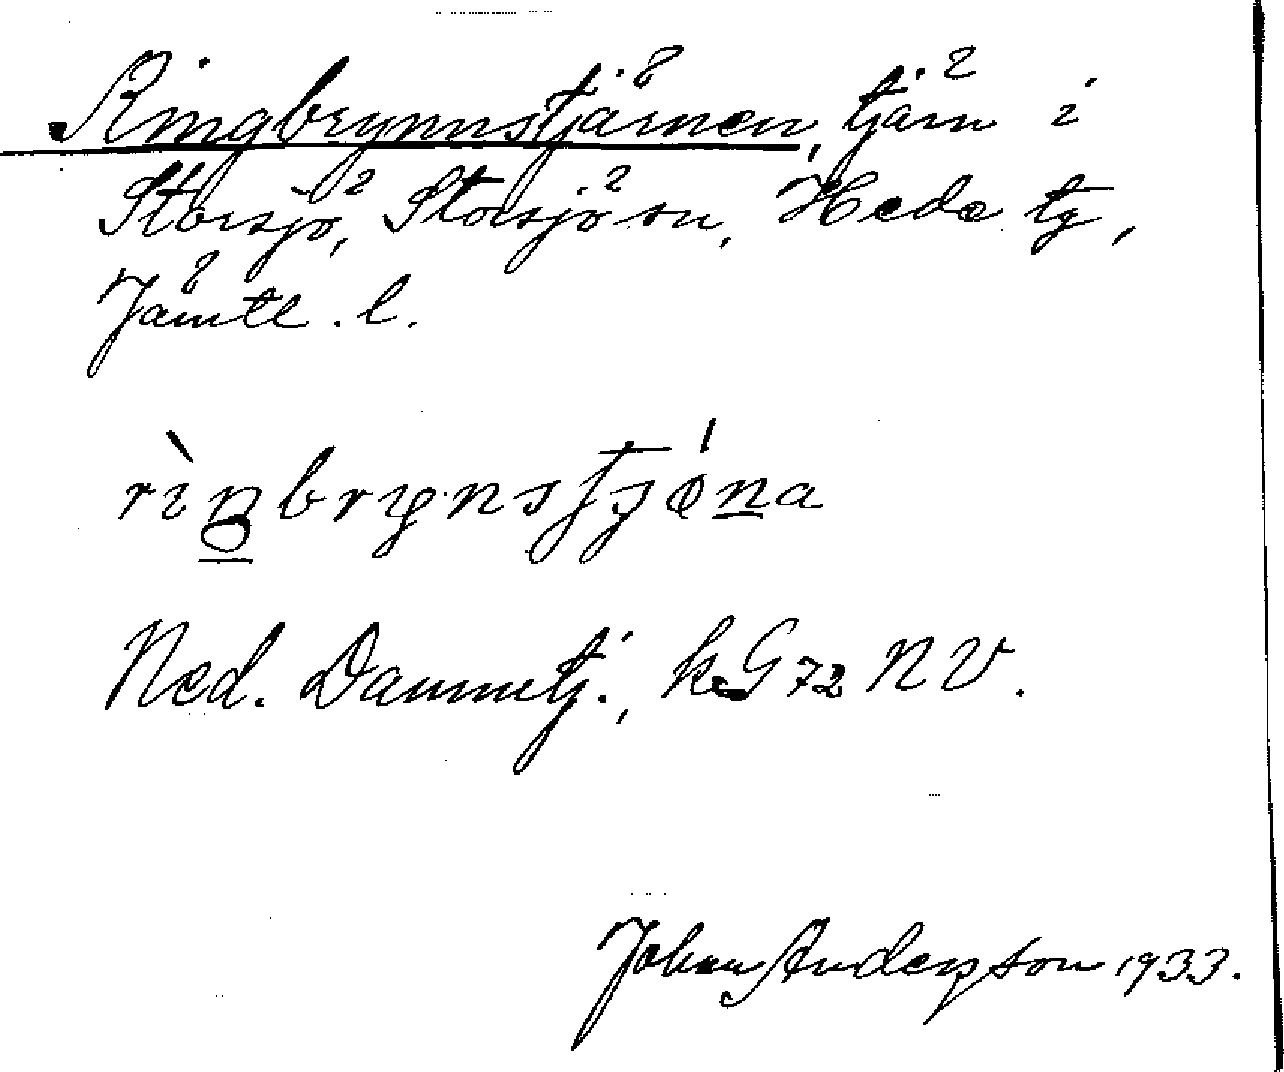 Ringbrynnstjärnen, tjärn i
Storsjö, Storsjö sn, Hede tg,
Jämtl. l.
rìŋbrynstjǿna
Ned. Dammtj., kG 72 NV.
Johan Anderzson 1933.